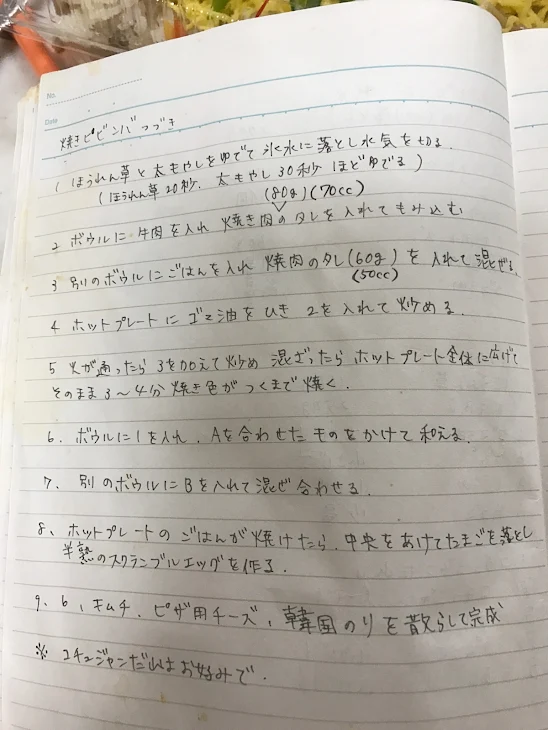 No.
Date
焼きビビンバつづき
1 ほうれん草と太もやしをゆでて氷水に落とし水気を切る
(ほうれん草20秒、太もやし30秒ほどゆでる)
(80g)(70cc)
2 ボウルに牛肉を入れ焼き肉のタレを入れてもみ込む
3 別のボウルにごはんを入れ焼肉のタレ(60g)を入れて混ぜる
(50cc)
4 ホットプレートにゴマ油をひき2を入れて炒める
5 火が通ったら3を加えて炒め混ざったらホットプレート全体に広げて
そのまま3〜4分焼き色がつくまで焼く.
6. ボウルに1を入れ、Aを合わせたものをかけて和える.
7、別のボウルにBを入れて混ぜ合わせる.
8、ホットプレートのごはんが焼けたら、中央をあけてたまごを落とし
半熟のスクランブルエッグを作る.
9、6、キムチ、ピザ用チーズ、韓国のりを散らして完成
※ コチュジャンだれはお好みで.